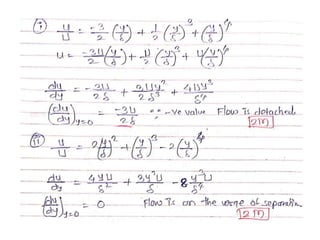 (i) u/U = -3/2 (y/δ) + 1/2 (y/δ)³ + (y/δ)⁴
u = -3U/2 (y/δ) + U/2 (y/δ)³ + U(y/δ)⁴
du/dy = -3U/2δ + 3Uy²/2δ³ + 4Uy³/δ⁴
(du/dy)y=0 = -3U/2δ ∵ -ve value Flow is detached
2M
(ii) u/U = 2(y/δ)² + (y/δ)³ - 2(y/δ)⁴
du/dy = 4yU/δ² + 3y²U/δ - 8y³U/δ⁴
(du/dy)y=0 = 0 Flow is on the verge of separation
2M